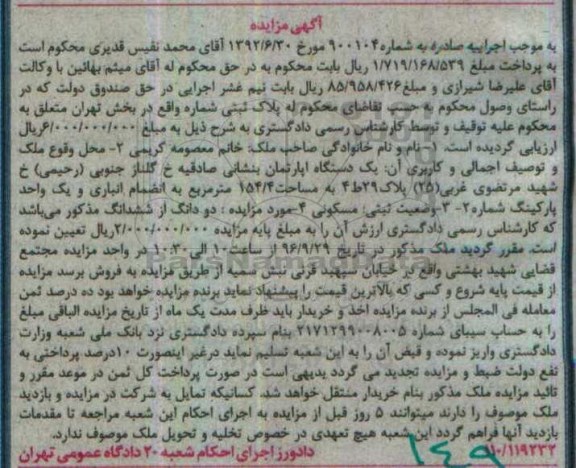 آگهی مزایده
به موجب اجراییه صادره به شماره ۹۰۰۱۰۴ مورخ ۱۳۹۲/۶/۳۰ آقای محمد نفیس قدیری محکوم است
به پرداخت مبلغ ۱/۷۱۹/۱۶۸/۵۳۹ ریال بابت محکوم به در حق محکوم له آقای میثم بهائین با وکالت
آقای علیرضا شیرازی و مبلغ ۸۵/۹۵۸/۴۲۶ ریال بابت نیم عشر اجرایی در حق صندوق دولت که در
راستای وصول محکوم به حسب تقاضای محکوم له پلاک ثبتی شماره واقع در بخش تهران متعلق به
محکوم علیه توقیف و توسط کارشناس رسمی دادگستری به شرح ذیل به مبلغ ۶/۰۰۰/۰۰۰/۰۰۰ریال
ارزیابی گردیده است. ۱- نام و نام خانوادگی صاحب ملک: خانم معصومه کریمی ۲- محل وقوع ملک
و توصیف اجمالی و کاربری آن: یک دستگاه آپارتمان بنشانی صادقیه خ گلناز جنوبی (رحیمی) خ
شهید مرتضوی غربی(۲۵) پلاک۲۹ط۴ به مساحت۱۵۴/۴ مترمربع به انضمام انباری و یک واحد
پارکینگ شماره۲- ۳-وضعیت ثبتی: مسکونی ۴-مورد مزایده : دو دانگ از ششدانگ مذکور می‌باشد
که کارشناس رسمی دادگستری ارزش آن را به مبلغ پایه مزایده ۲/۰۰۰/۰۰۰/۰۰۰ریال تعیین نموده
است. مقرر گردید ملک مذکور در تاریخ ۹۶/۹/۲۹ از ساعت۱۰ الی ۱۰:۳۰ در واحد مزایده مجتمع
قضایی شهید بهشتی واقع در خیابان سپهبد قرنی نبش سمیه از طریق مزایده به فروش برسد مزایده
از قیمت پایه شروع و کسی که بالاترین قیمت را پیشنهاد نماید برنده مزایده خواهد بود ده درصد ثمن
معامله فی المجلس از برنده مزایده اخذ و خریدار باید ظرف مدت یک ماه از تاریخ مزایده الباقی مبلغ
را به حساب سیبای شماره ۲۱۷۱۲۹۹۰۰۸۰۰۵ بنام سپرده دادگستری نزد بانک ملی شعبه وزارت
دادگستری واریز نموده و قبض آن را به این شعبه تسلیم نماید درغیر اینصورت ۱۰درصد پرداختی به
نفع دولت ضبط و مزایده تجدید می گردد بدیهی است در صورت پرداخت کل ثمن در موعد مقرر و
تائید مزایده ملک مذکور بنام خریدار منتقل خواهد شد. کسانیکه تمایل به شرکت در مزایده و بازدید
ملک موصوف را دارند میتوانند ۵ روز قبل از مزایده به اجرای احکام این شعبه مراجعه تا مقدمات
بازدید آنها فراهم گردد این شعبه هیچ تعهدی در خصوص تخلیه و تحویل ملک موصوف ندارد.
۱۰/۱۱۹۲۳۲ دادورز اجرای احکام شعبه ۲۰ دادگاه عمومی تهران